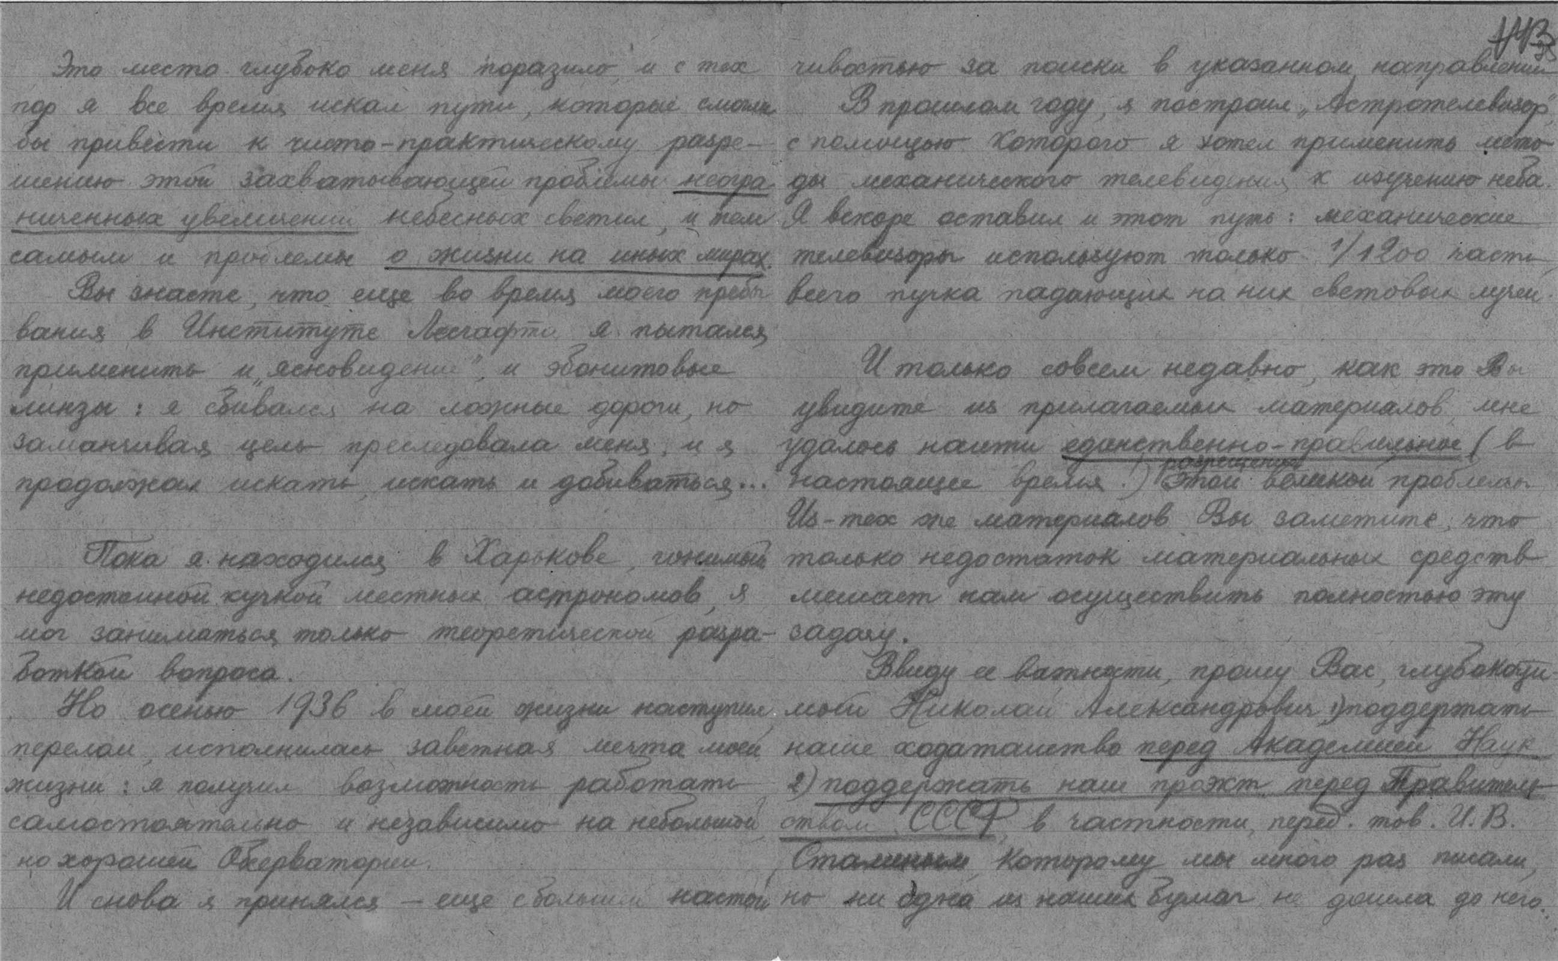 Это место глубоко меня поразило, и с тех
пор я все время искал пути, которые смогли
бы привести к чисто-практическому разре-
шению этой захватывающей проблемы неогра
ниченных увеличений небесных светил, и тем
самым и проблемы о жизни на иных мирах.
Вы знаете, что еще во время моего пребы
вания в Институте Лесгафта я пытался
применить и „ясновидение", и эбонитовые
линзы: я сбивался на ложные дороги, но
заманчивая цель преследовала меня, и я
продолжал искать, искать и добиваться...
Пока я находился в Харькове, гонимый
недостойной кучкой местных астрономов, я
мог заниматься только теоретической разра-
боткой вопроса.
Но осенью 1936 в моей жизни наступил
перелом, исполнилась заветная мечта моей
жизни: я получил возможность работать
самостоятельно и независимо на небольшой,
но хорошей Обсерватории.
И снова я принялся – еще с большей настой
чивостью за поиски в указанном направлении
В прошлом году, я построил „Астротелевизор",
с помощью которого я хотел применить мето
ды механического телевидения к изучению неба.
Я вскоре оставил и этот путь: механические
телевизоры используют только 1/1200 часть
всего пучка падающих на них световых лучей.
И только совсем недавно, как это Вы
увидите из прилагаемых материалов, мне
удалось найти единственно-правильное (в
настоящее время.) разрешение этой великой проблемы
Из-тех же материалов Вы заметите, что
только недостаток материальных средств
мешает нам осуществить полностью эту
задачу.
Ввиду ее важности, прошу Вас, глубокочти-
мый Николай Александрович 1) поддержать
наше ходатайство перед Академией Наук
2) поддержать наш проэкт перед Правитель
ством СССР, в частности, перед. тов. И. В.
Сталиным которому мы много раз писали,
но ни одна из наших бумаг не дошла до него.